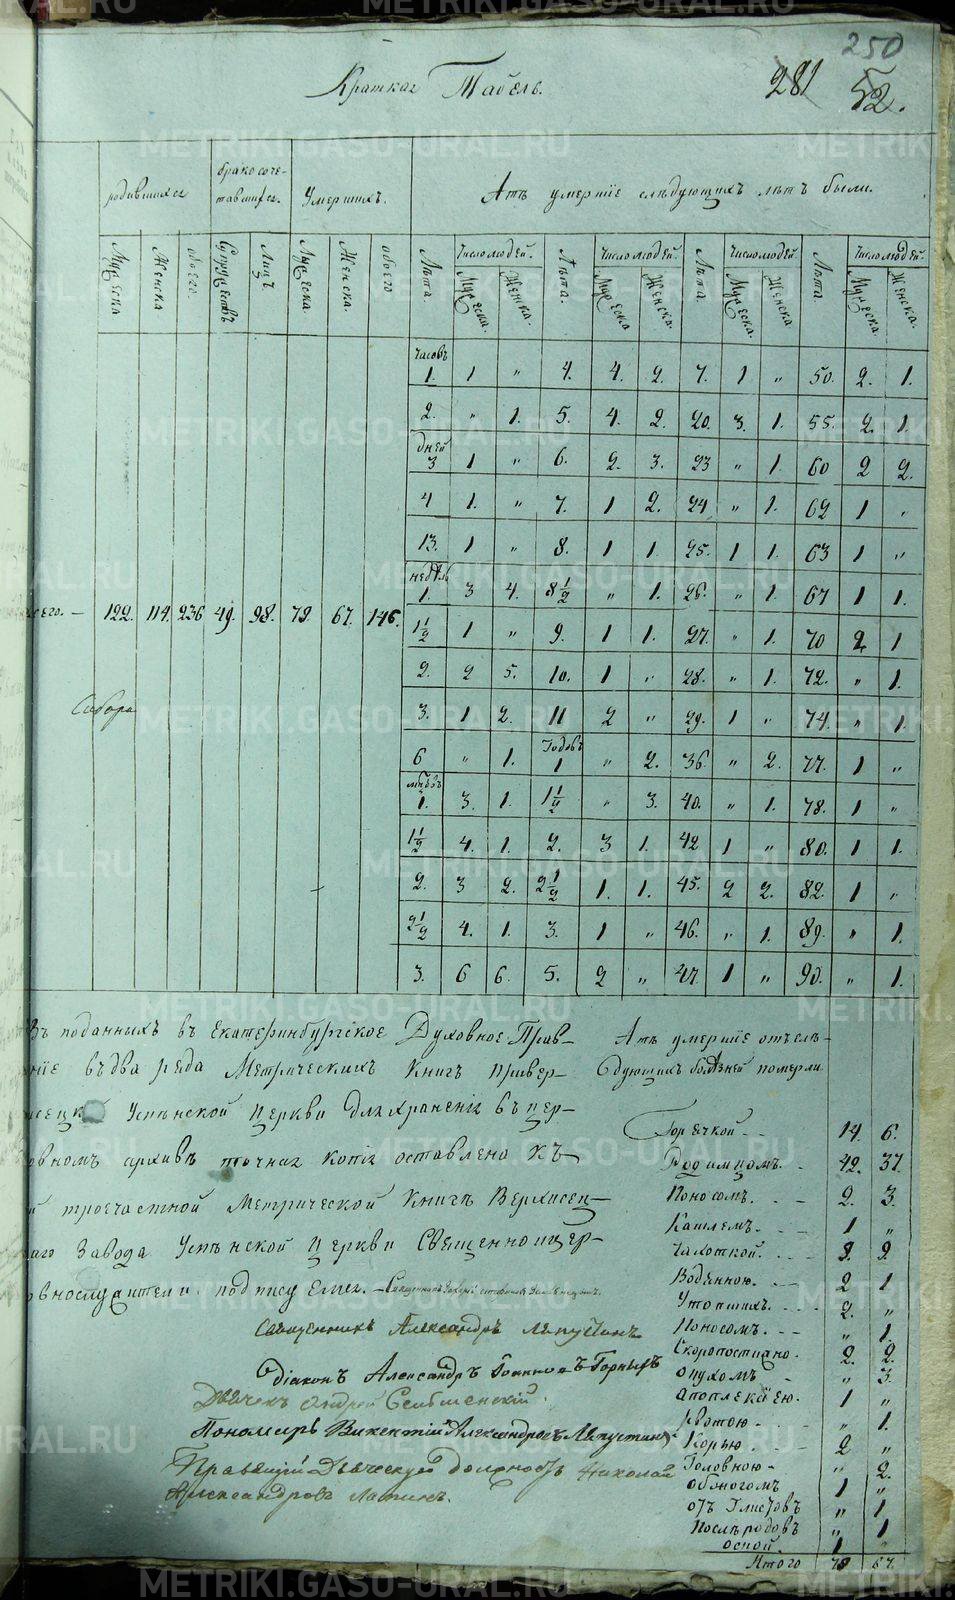 250
281
52.
Краткая Табель.
родившихся
брако соче-
тавшихся.
Умершихъ.
Атъ умершіе слѣдующихъ лѣтъ были.
Мужеска
Женска
обоего.
Супружествъ
Лицъ
Мужеска.
Женска.
обоего
Лѣта.
Число людей.
Мужеска.
Женска.
Лѣта.
Число людей.
Мужеска
Женска.
Лѣта
Число людей
Мужеска.
Женска.
Лѣта.
Число людей.
Мужеска
Женска.
часовъ
1. 1 " 4. 4. 2. 7. 1 " 50. 2. 1.
2. " 1. 5. 4. 2. 20. 3. 1. 55. 2. 1.
дней
3 1 " 6. 2. 3. 23 " 1. 60 2 2.
4 1. " 7. 1 2. 24 " 1. 62 1 "
13. 1 " 8. 1 1. 25. 1 1. 63 1 "
недѣль
1. 3 4. 8 1/2 " 1. 26. " 1. 67 1 1.
1 1/2 1 " 9. 1 1. 27. " 1. 70 2. 1
2. 2 5. 10. 1 " 28. " 1. 72. " 1.
3. 1 2. 11 2 " 29. 1 " 74. " 1.
6 " 1. Годовъ 1 " 2. 36. " 2. 77. 1 "
1. 3. 1. 1 1/2 " 3. 40. " 1. 78. 1 "
1 1/2 4. 1. 2. 3 1. 42 1 " 80. 1 1.
2. 3 2. 2 1/2 1. 1. 45. 2 2. 82. 1 "
2 1/2 4. 1. 3. 1 " 46. " 1. 89. " 1.
3. 6 6. 5. 2 " 47. 1 " 90. " 1.
его. — 122. 114. 236 49. 98. 79. 67. 146.
Собора
Въ поданныхъ въ Екатеринбургское Духовное Прав-
ніе въ два ряда Метрическихъ Книгъ Привер-
Успѣнской Церкви для храненія въ цер-
овномъ архивѣ точная копія оставлена къ
й троечастной Метрической Книгѣ Верхисец-
аго Завода Успѣнской Церкви Священноцер-
овнослужители подписуемся. —
Священникъ Александръ Лапустинъ
Діаконъ Александръ Іоанновъ Горныхъ
Дьячекъ Андрей
Пономарь Викентій Александровъ Лапустинъ
Правящій Дьяческую должность Николай
Александровъ Лапинъ.
Атъ умершіе отъ слѣ-
дующихъ болѣзней померли
Горячкой 14. 6.
Родимцомъ. 42. 37.
Поносомъ. 2. 3.
Кашлемъ. 1 "
Чахоткой. 8. 9.
Водянною. 2 1
Утопшихъ. 2. "
Поносомъ. " 1.
Скоропостижно. 2. 2.
опухомъ " 3.
апоплексіею. 1 "
рвотою " 1.
Корью. 2 "
Головною " 2.
1 "
отъ Глистовъ " 1
Послѣ родовъ " 1
оспой. 1 "
Итого 79 67.
METRIKI.GASO-URAL.RU